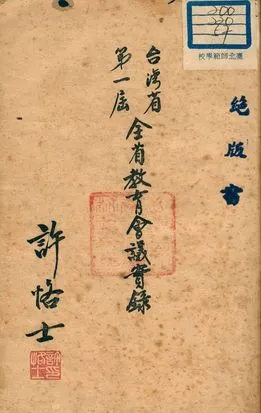 200
220
絕版書
臺北師範學校
台灣省
第一屆
全省教育會議實錄
許恪士